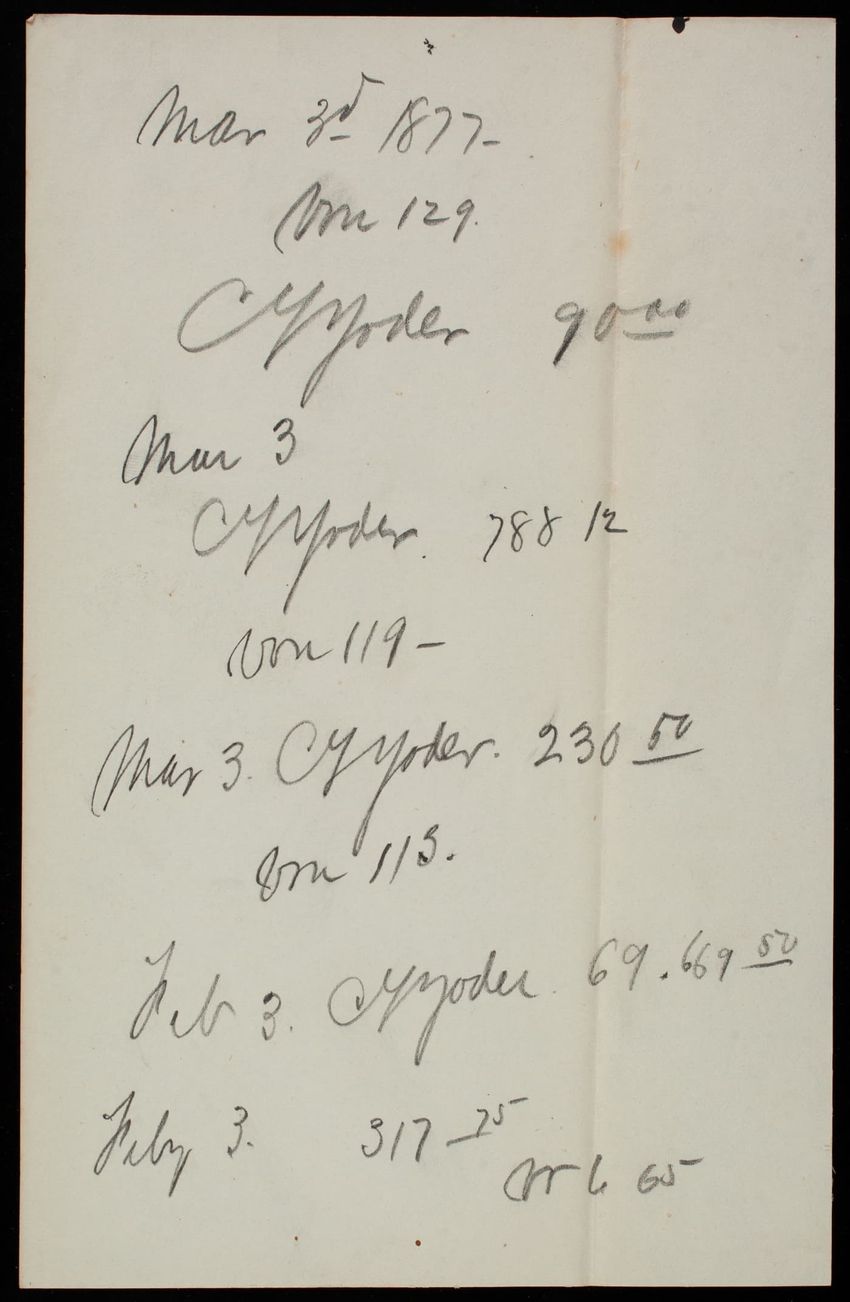 Mar 3d 1877-
Vou 129.
C Y Yoder 90 00
Mar 3
C Y Yoder. 788 12
Vou 119-
Mar 3. C Y Yoder. 230 50
Vou 113.
Feb 3. C Y Yoder. 69.669 50
Feby 3. 317 75
65